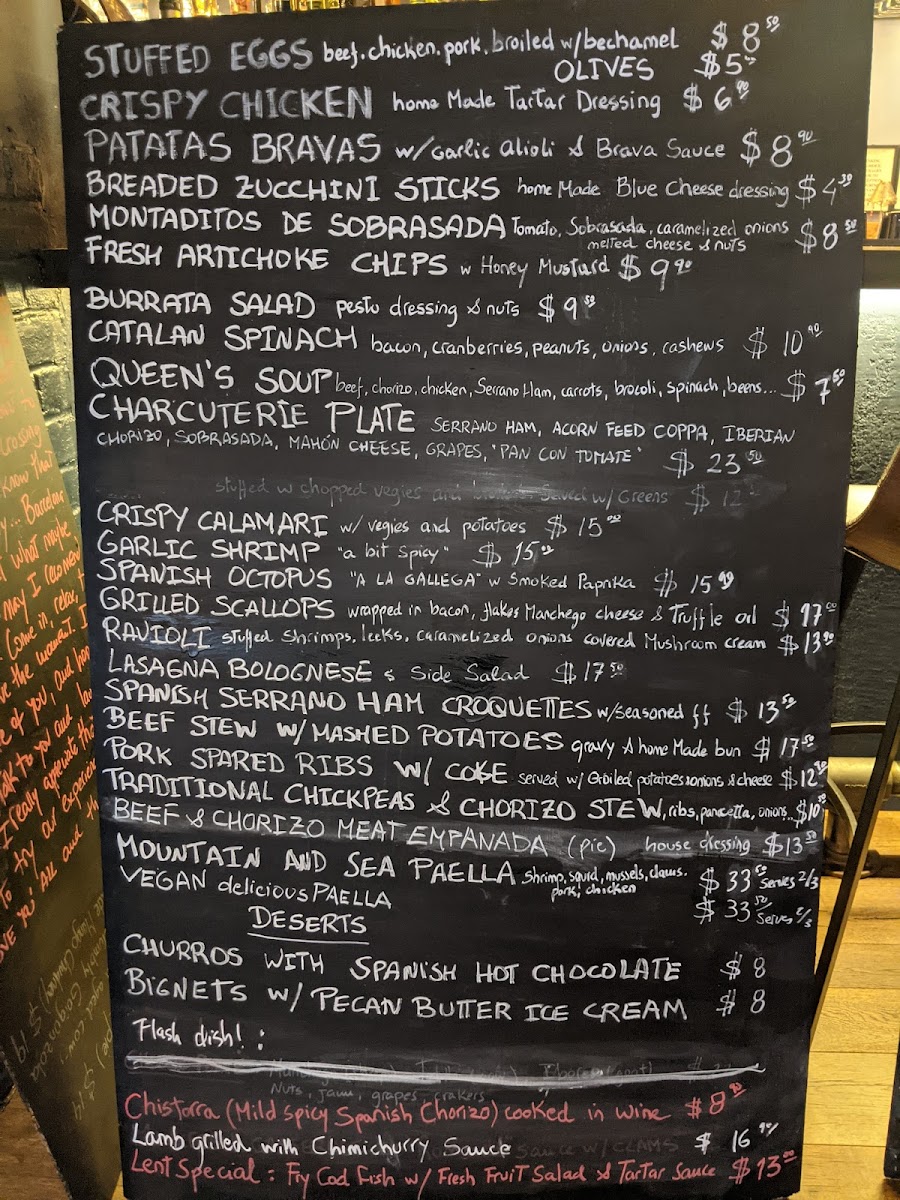 STUFFED EGGS beef, chicken, pork, broiled w/bechamel $8.50
OLIVES $5
CRISPY CHICKEN home Made Tartar Dressing $6.90
PATATAS BRAVAS w/Garlic Alioli & Brava Sauce $8.90
BREADED ZUCCHINI STICKS home Made Blue Cheese dressing $4
MONTADITOS DE SOBRASADA Tomato, Sobrasada, caramelized onions $8.50
melted cheese & nuts
FRESH ARTICHOKE CHIPS w Honey Mustard $9.90
BURRATA SALAD pesto dressing & nuts $9
CATALAN SPINACH bacon, cranberries, peanuts, onions, cashews $10.90
QUEEN'S SOUP beef, chorizo, chicken, Serrano Ham, carrots, brocoli, spinach, beens... $7.50
CHARCUTERIE PLATE SERRANO HAM, ACORN FEED COPPA, IBERIAN
CHORIZO, SOBRASADA, MAHÓN CHEESE, GRAPES, "PAN CON TOMATE" $23.50
stuffed w chopped vegies and w/ Greens $12
CRISPY CALAMARI w/ vegies and potatoes $15.00
GARLIC SHRIMP "a bit spicy" $15
SPANISH OCTOPUS "A LA GALLEGA" w Smoked Paprika $15.99
GRILLED SCALLOPS wrapped in bacon, flakes Manchego cheese & Truffle oil $17.00
RAVIOLI stuffed Shrimps, leeks, caramelized onions covered Mushroom cream $13.90
LASAGNA BOLOGNESE & Side Salad $17.50
SPANISH SERRANO HAM CROQUETTES w/seasoned ff $13.50
BEEF STEW W/ MASHED POTATOES gravy & home Made bun $17.50
PORK SPARED RIBS W/ COKE served w/ Groiled potatoes & onions & cheese $12.90
TRADITIONAL CHICKPEAS & CHORIZO STEW, ribs, pancetta, onions... $10
BEEF & CHORIZO MEAT EMPANADA (pie) house dressing $13.50
MOUNTAIN AND SEA PAELLA shrimp, squid, mussels, clams. $33.50 Serves 2/3
pork, chicken
VEGAN delicious PAELLA $33.50 Serves 2/3
DESERTS
CHURROS WITH SPANISH HOT CHOCOLATE $8
BIGNETS W/ PECAN BUTTER ICE CREAM $8
Flash dish! :
Nuts, jam, grapes - crakers
Chistorra (Mild spicy Spanish Chorizo) cooked in wine $8.90
Lamb grilled with Chimichurry Sauce $16
Lent Special : Fry Cod Fish w/ Fresh Fruit Salad & Tartar Sauce $13.00